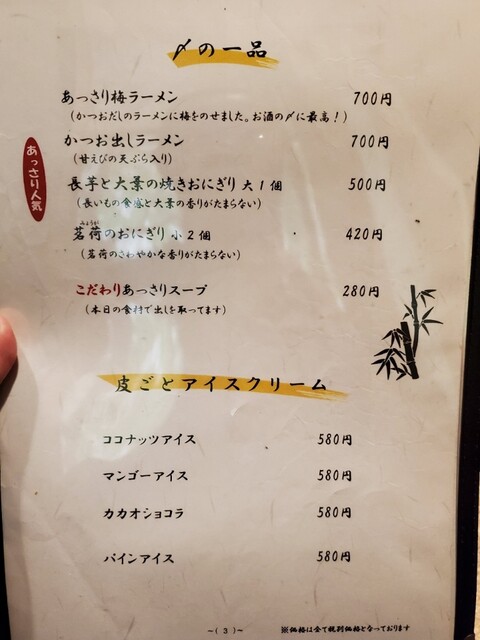 〆の一品
あっさり梅ラーメン 700円
(かつおだしのラーメンに梅をのせました。お酒の〆に最高！)
かつお出しラーメン 700円
(甘えびの天ぷら入り)
あっさり人気
長芋と大葉の焼きおにぎり 大1個 500円
(長いもの食感と大葉の香りがたまらない)
みょうが
茗荷のおにぎり 小2個 420円
(茗荷のさわやかな香りがたまらない)
こだわりあっさりスープ 280円
(本日の食材で出しを取ってます)
皮ごとアイスクリーム
ココナッツアイス 580円
マンゴーアイス 580円
カカオショコラ 580円
パインアイス 580円
~( 3 )~
※価格は全て税別価格となっております